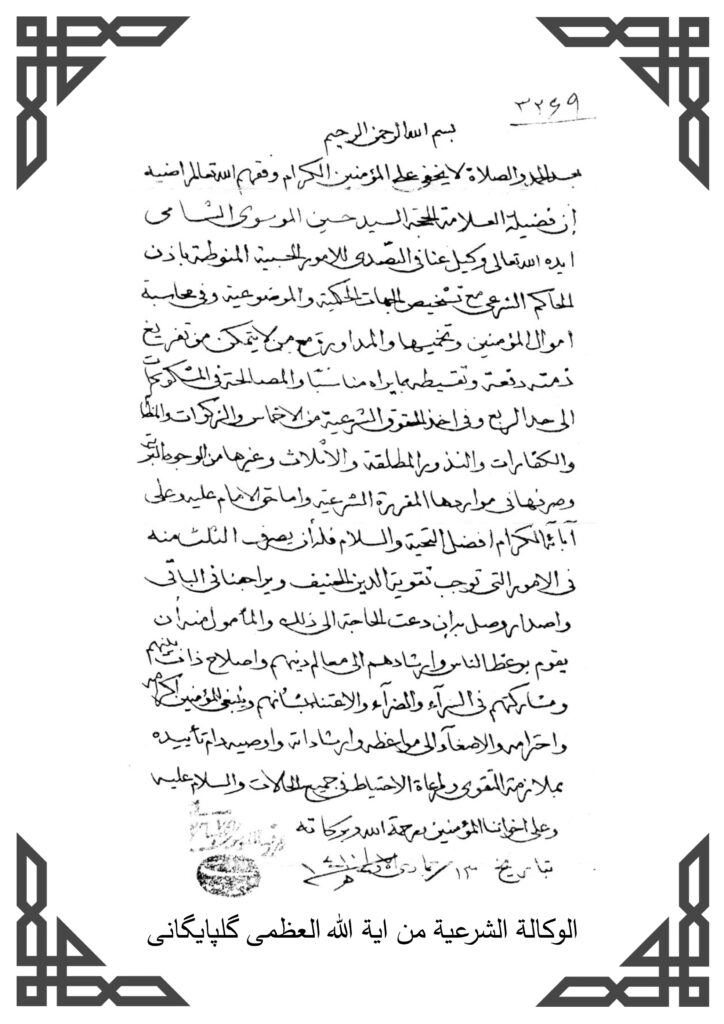 ٣٢٤٩
بسم الله الرحمن الرحيم
بعد الحمد والصلاة لا يخفى على المؤمنين الكرام وفقهم الله تعالى لمراضيه
إن فضيلة العلامة الحجة السيد حسين الموسوي الشامي
ايده الله تعالى وكيل عنا في التصدي للامور الحسبية المنوطة باذن
الحاكم الشرعي مع تشخيص الجهات الحكمية والموضوعية وفي محاسبة
اموال المؤمنين وتخميسها والمداورة مع من لا يتمكن من تفريغ
ذمته دفعة وتقسيطه بما يراه مناسبًا والمصالحة في المشكوكات
الى حد الربع وفي اخذ الحقوق الشرعية من الاخماس والزكوات والمظالم
والكفارات والنذور المطلقة والاثلاث وغيرها من الوجوه البرية
وصرفها في مواردها المقررة الشرعية واما حق الامام عليه وعلى
آبائه الكرام افضل التحية والسلام فله أن يصرف الثلث منه
في الامور التي توجب تقوية الدين الحنيف ويراجعنا في الباقي
واصدار وصل به إن دعت الحاجة الى ذلك والمأمول منه أن
يقوم بوعظ الناس وارشادهم الى معالم دينهم واصلاح ذات بينهم
ومشاركتهم في السرآء والضرآء والاعتناء بشأنهم وينبغي للمؤمنين اكرامه
واحترامه والاصغآء الى مواعظه وارشاداته واوصيه دام تأييده
بملازمة التقوى ومراعاة الاحتياط في جميع الحالات والسلام عليه
وعلى اخواننا المؤمنين ورحمة الله وبركاته
بتاريخ ١٣ / جمادى
الوكالة الشرعية من اية الله العظمى گلپایگانی